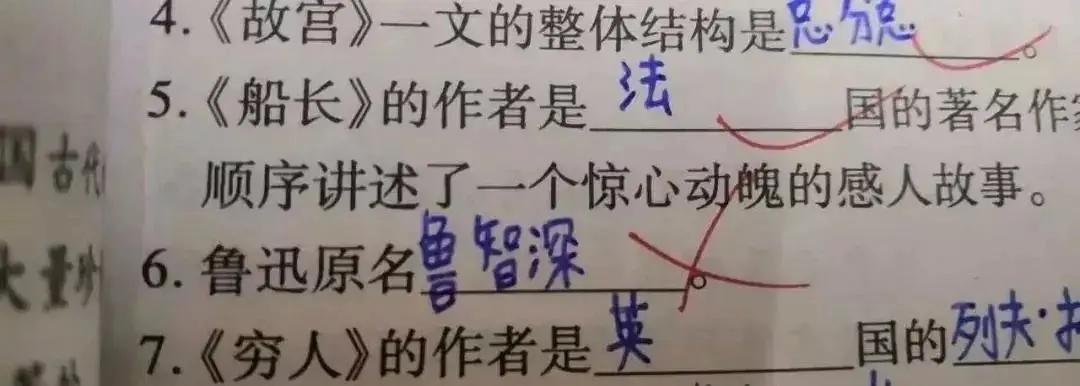 4.《故宫》一文的整体结构是总分总。
5.《船长》的作者是法国的著名作
顺序讲述了一个惊心动魄的感人故事。
6. 鲁迅原名鲁智深。
7.《穷人》的作者是英国的列夫·
国古代
大量